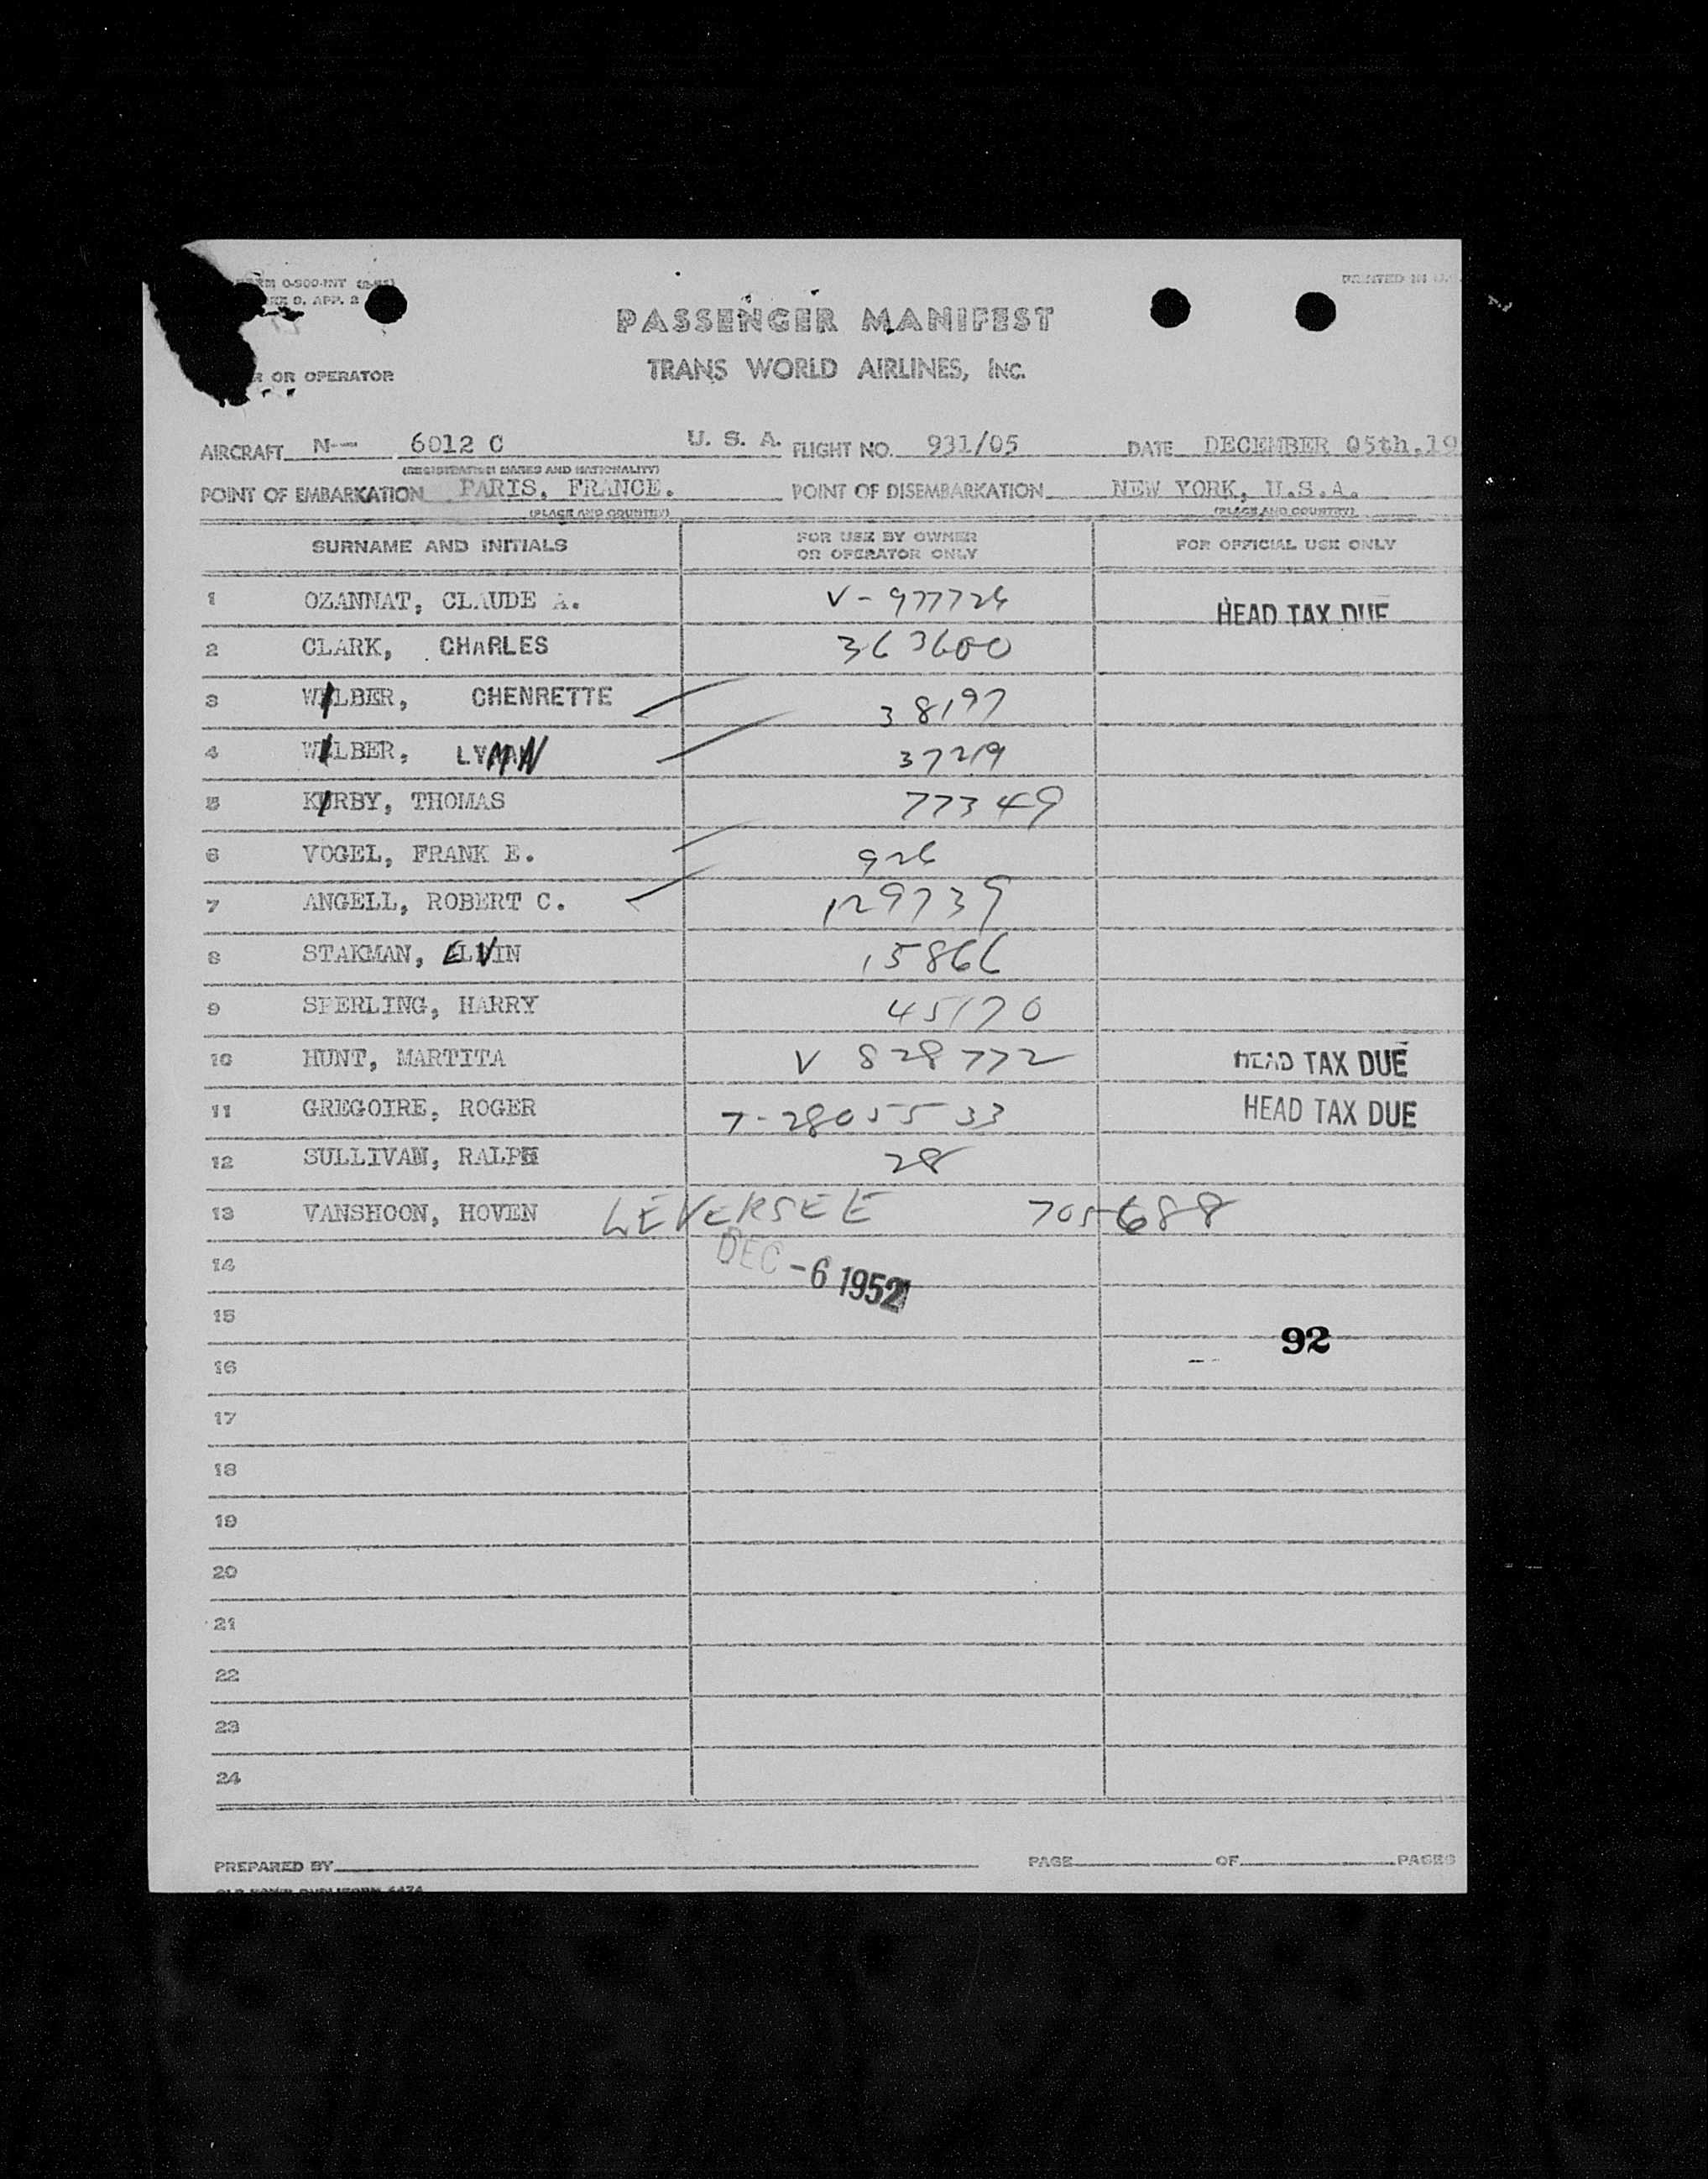 FORM O-900-INT
APP. 2
PRINTED IN U.
PASSENGER MANIFEST
TRANS WORLD AIRLINES, INC.
OR OPERATOR
AIRCRAFT N-- 6012 C U. S. A. FLIGHT NO. 931/05 DATE DECEMBER 05th,19
(REGISTRATION MARKS AND NATIONALITY)
POINT OF EMBARKATION PARIS, FRANCE. POINT OF DISEMBARKATION NEW YORK, U.S.A.
(PLACE AND COUNTRY) (PLACE AND COUNTRY)
SURNAME AND INITIALS FOR USE BY OWNER OR OPERATOR ONLY FOR OFFICIAL USE ONLY
1 OZANNAT, CLAUDE A. V-977724 HEAD TAX DUE
2 CLARK, CHARLES 363600
3 WILBER, CHENRETTE 38197
4 WILBER, LYMAN 37219
5 KIRBY, THOMAS 77349
6 VOGEL, FRANK E. 926
7 ANGELL, ROBERT C. 129739
8 STAKMAN, ELVIN 15866
9 SPERLING, HARRY 45170
10 HUNT, MARTITA V 828772 HEAD TAX DUE
11 GREGOIRE, ROGER T-2805533 HEAD TAX DUE
12 SULLIVAN, RALPH 28
13 VANSHOON, HOVEN LEVERSEE 705688
14 DEC -6 1952
15
92
16
17
18
19
20
21
22
23
24
PREPARED BY PAGE OF PAGES